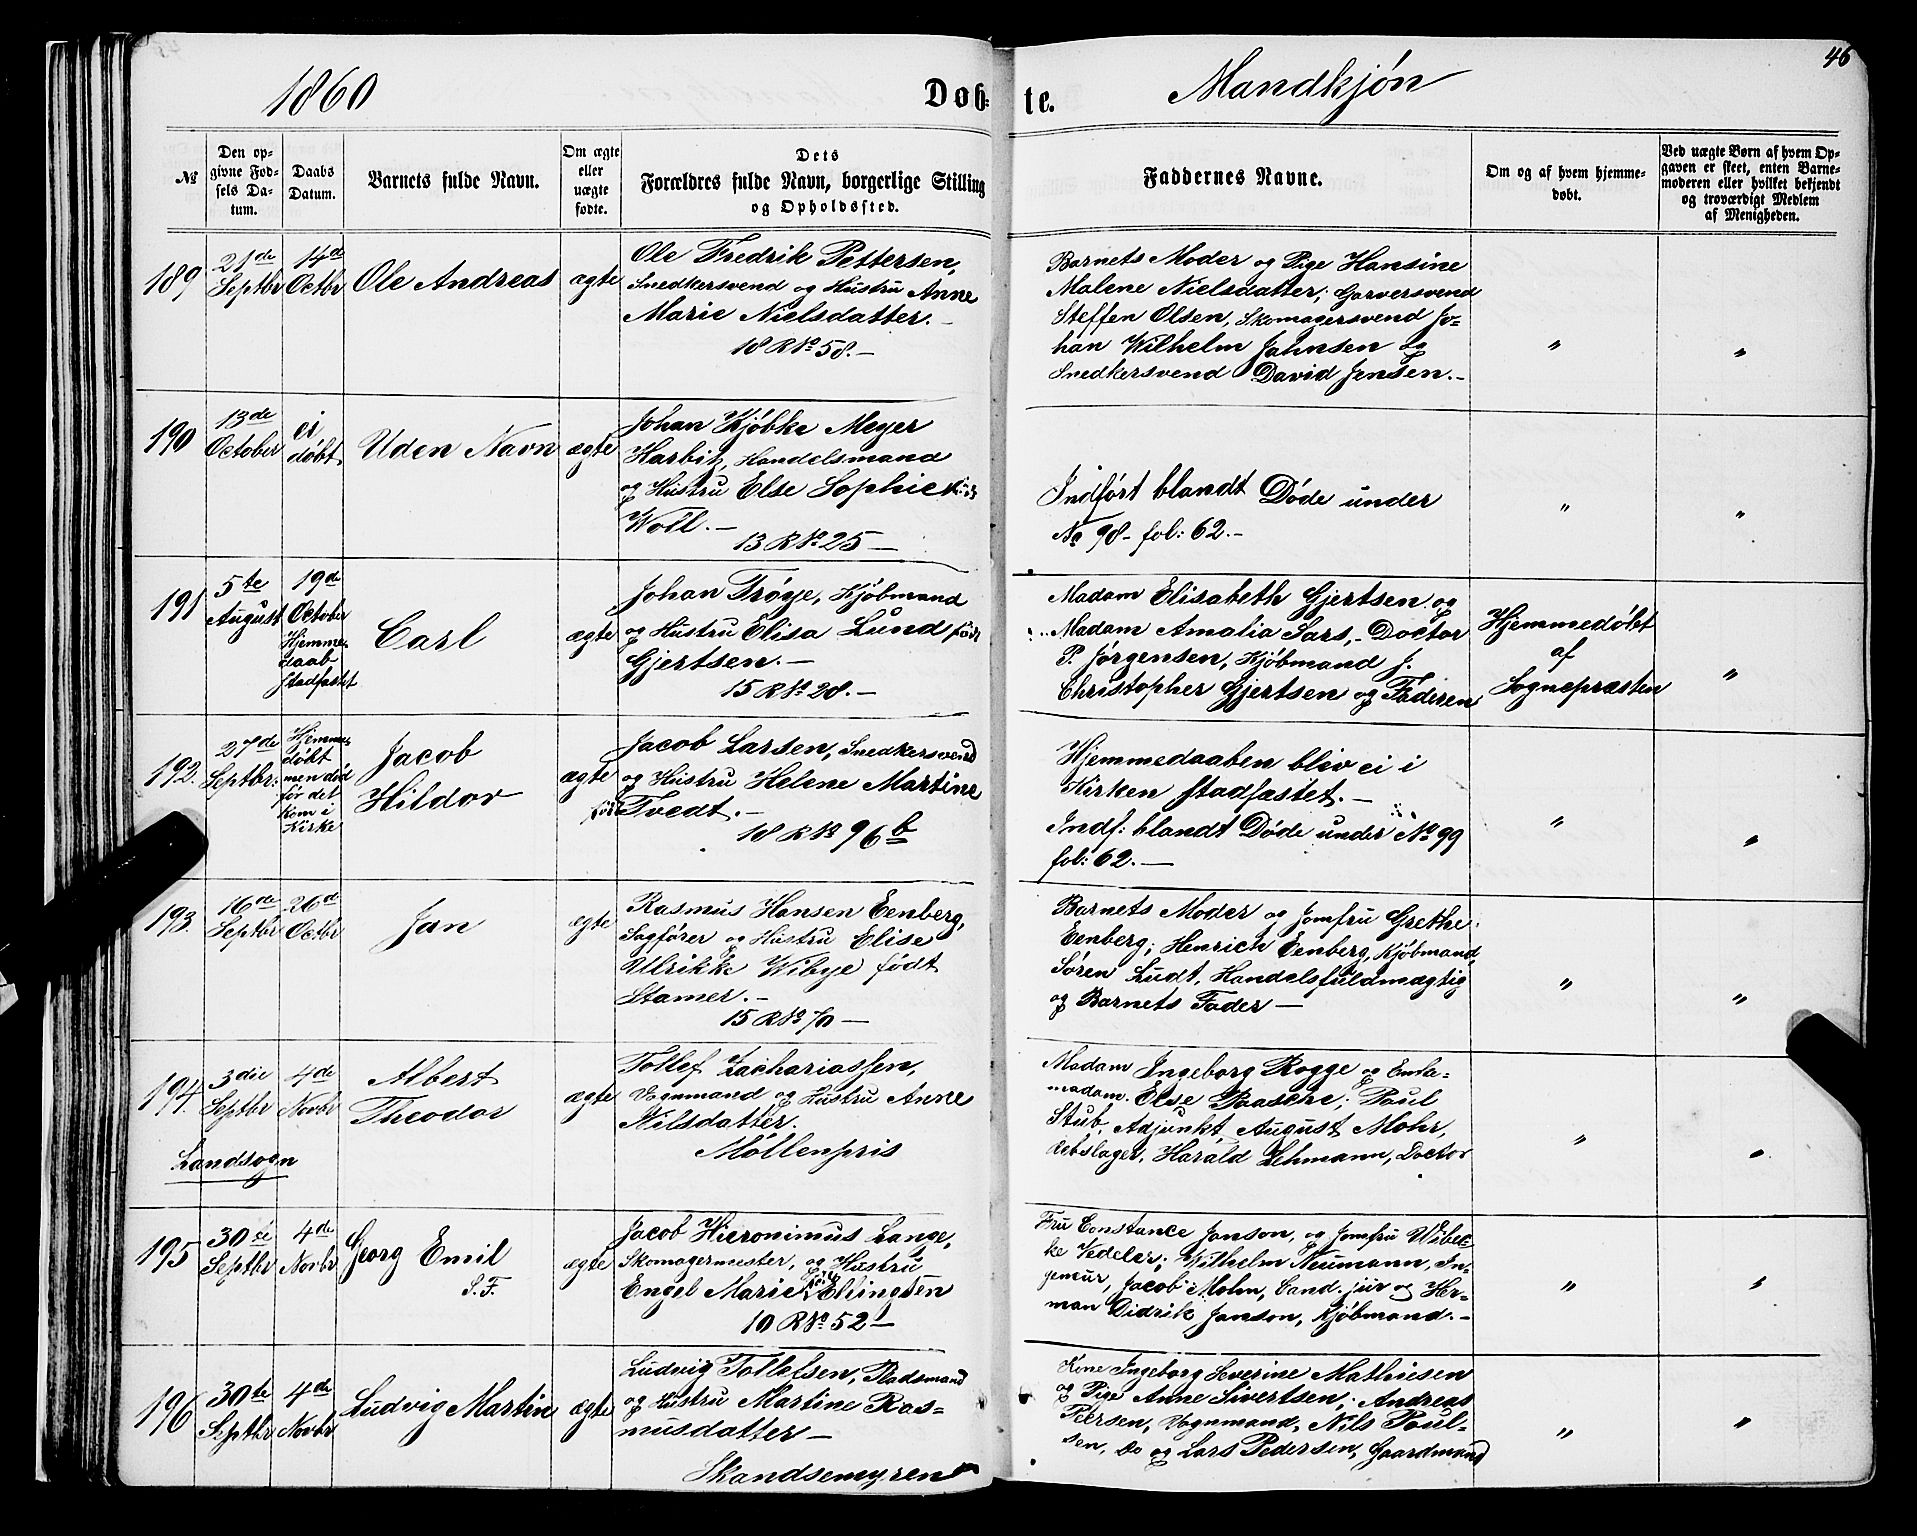 46
1860
Døb-
te.
Mandkjön
№
Den op-
givne Fød-
sels Da-
tum.
Daabs
Datum.
Barnets fulde Navn.
Om ægte
eller
uægte
fødte.
Dets
Forældres fulde Navn, borgerlige Stilling
og Opholdssted.
Faddernes Navne.
Om og af hvem hjemme-
døbt.
Ved uægte Børn af hvem Op-
gaven er skeet, enten Barne-
moderen eller hvilket bekjendt
og troværdigt Medlem
af Menigheden.
189
21de
Septbr
14de
Octbr
Ole Andreas
ægte
Ole Fredrik Pettersen,
Snedkersvend og Hustru Anne
Marie Nielsdatter. –
18 R № 58. –
Barnets Moder og Pige Hansine
Malene Nielsdatter; Garversvend
Steffen Olsen, Skomagersvend Jo-
han Wilhelm Jahnsen og
Snedkersvend David Jensen. –
"
"
190
13de
October
ei
döbt.
Uden Navn
ægte
Johan Kjöbke Meyer
Harbitz, Handelsmand
og Hustru Else Sophie
Woll. –
13 R № 25 –
Indfört blandt Döde under
No 98 – fol: 62. –
"
"
191
5te
August
19de
October
Hjemme-
daab
stadfæstet
Carl
ægte
Johan Tröye, Kjöbmand
og Hustru Elisa Lund född
Gjertsen. –
15 R № 28. –
Madam Elisabeth Gjertsen og
Madam Amalia Sars, – Doctor
P. Jörgensen, Kjöbmand J.
Christopher Gjertsen og Faderen
Hjemmedöbt
af
Sognepræsten
"
192.
27de
Septbr:
Hjemme-
döbt
men död
för det
kom i
Kirke
Jacob
Hildor
ægte
Jacob Larsen, Snedkersvend
og Hustru Helene Martine
Tvedt. –
18 R № 96 b
Hjemmedaaben blev ei i
Kirken stadfæstet. –
Indf: blandt Döde under № 99
fol: 62. –
"
"
193.
16de
Septbr
26de
Octbr
Jan
ægte
Rasmus Hansen Eenberg,
Sagförer og Hustru Elise
Ulrikke Wibye födt
Stamer. –
15 R № 70 –
Barnets Moder og Jomfru Grethe
Eenberg; Henrich Eenberg, Kjöbmand,
Sören Ludt, Handelsfuldmægtig
og Barnets Fader –
"
"
194.
3die
Septbr
4de
Novbr
Albert
Theodor
ægte
Tollef Zachariassen,
Vognmand og Hustru Anne
Nilsdatter.
Möllenpris
Madam Ingeborg Rogge og Enke-
madam. Else Paasche; Paul
Stub, Adjunkt, August Mohr,
Rebslager, Harald Lehmann, Doctor
"
"
Landsogn
195
30te
Septbr
4de
Novbr
Georg Emil
S. F.
ægte
Jacob Hieronimus Lange,
Skomagermester, og Hustru
Engel Marie födt Ellingsen
10 R № 52 –
Fru Constance Janson, og Jomfru Wibec-
ke Vedeler; Wilhelm Neumann, In-
geniur, Jacob Mohn, Cand. jur og Her-
man Didrik Janson, Kjöbmand. –
"
"
196
30te
Septbr
4de
Novbr
Ludvig Martin
ægte
Ludvig Tollefsen, Baadsmand
og Hustru Martine Ras-
musdatter –
Skandsemyren
Kone Ingeborg Severine Mathiesen
og Pige Anne Sivertsen; Andreas
Petersen, Vognmand, Nils Poul-
sen, Do og Lars Pedersen, Gaardmand
"
"